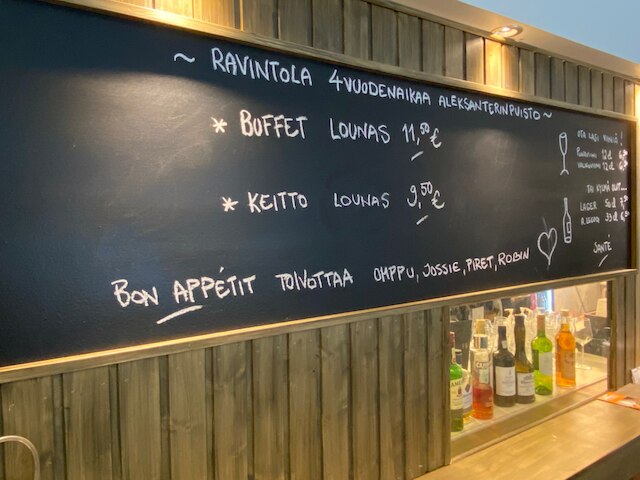 ~ RAVINTOLA 4VUODENAIKAA ALEKSANTERINPUISTO ~
* BUFFET LOUNAS 11,50 €
* KEITTO LOUNAS 9,50 €
BON APPÉTIT TOIVOTTAA OHPPU, JOSSIE, PIRET, ROBIN
OTA LASI VIINIÄ!
PUNAVIINI 12 cl
VALKOVIINI 12 cl
TAI KYLMÄ OLUT...
LAGER 50 cl
33 cl
SANTÉ